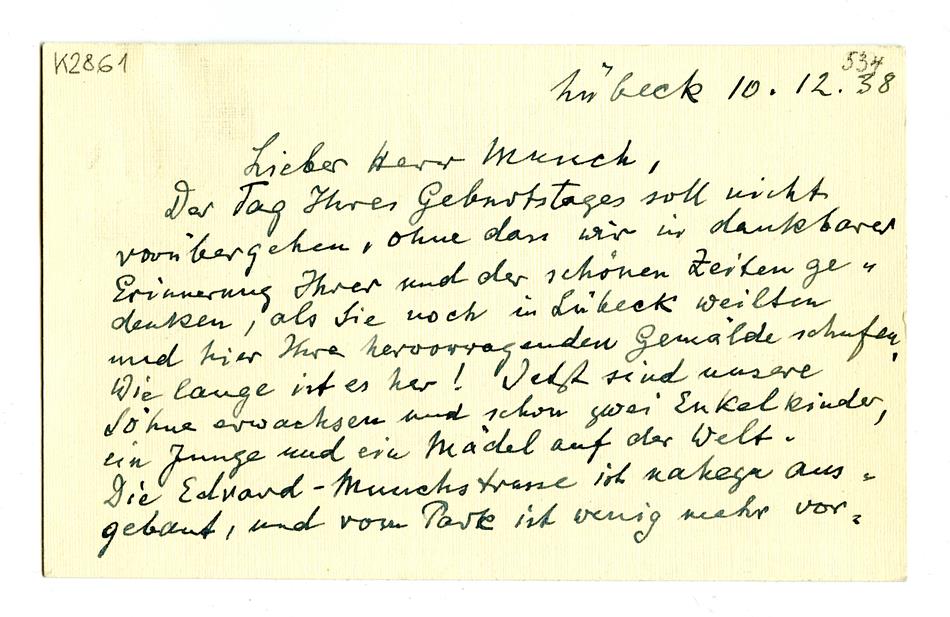 K2861
534
Lübeck 10.12.38
Lieber Herr Munch,
Der Tag Ihres Geburtstages soll nicht
vorübergehen, ohne dass wir in dankbarer
Erinnerung Ihrer und der schönen Zeiten ge=
denken, als Sie noch in Lübeck weilten
und hier Ihre hervorragenden Gemälde schufen.
Wie lange ist es her! Jetzt sind unsere
Söhne erwachsen und schon zwei Enkelkinder,
ein Junge und ein Mädel auf der Welt.
Die Edvard-Munchstrasse ist nahezu aus=
gebaut, und vom Park ist wenig mehr vor=